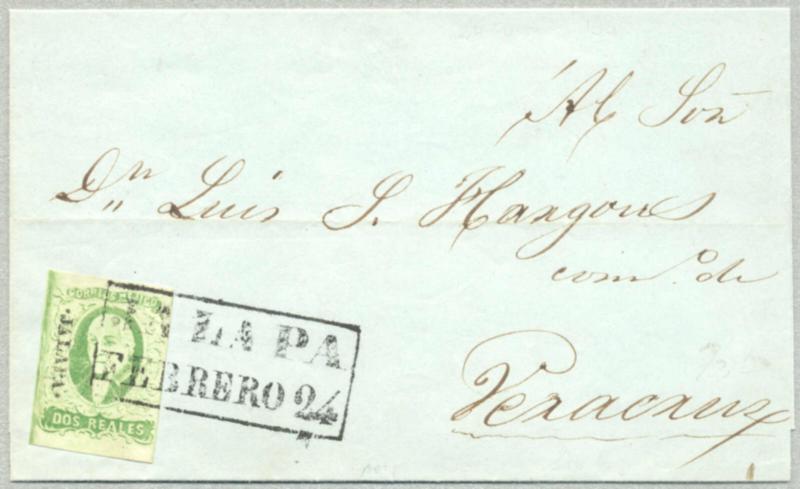 Al Sor̃
Dn Luis S. Hargous
com.o de
Veracruz
CORREOS MEJICO
JALAPA
DOS REALES
JALAPA
FEBRERO 24